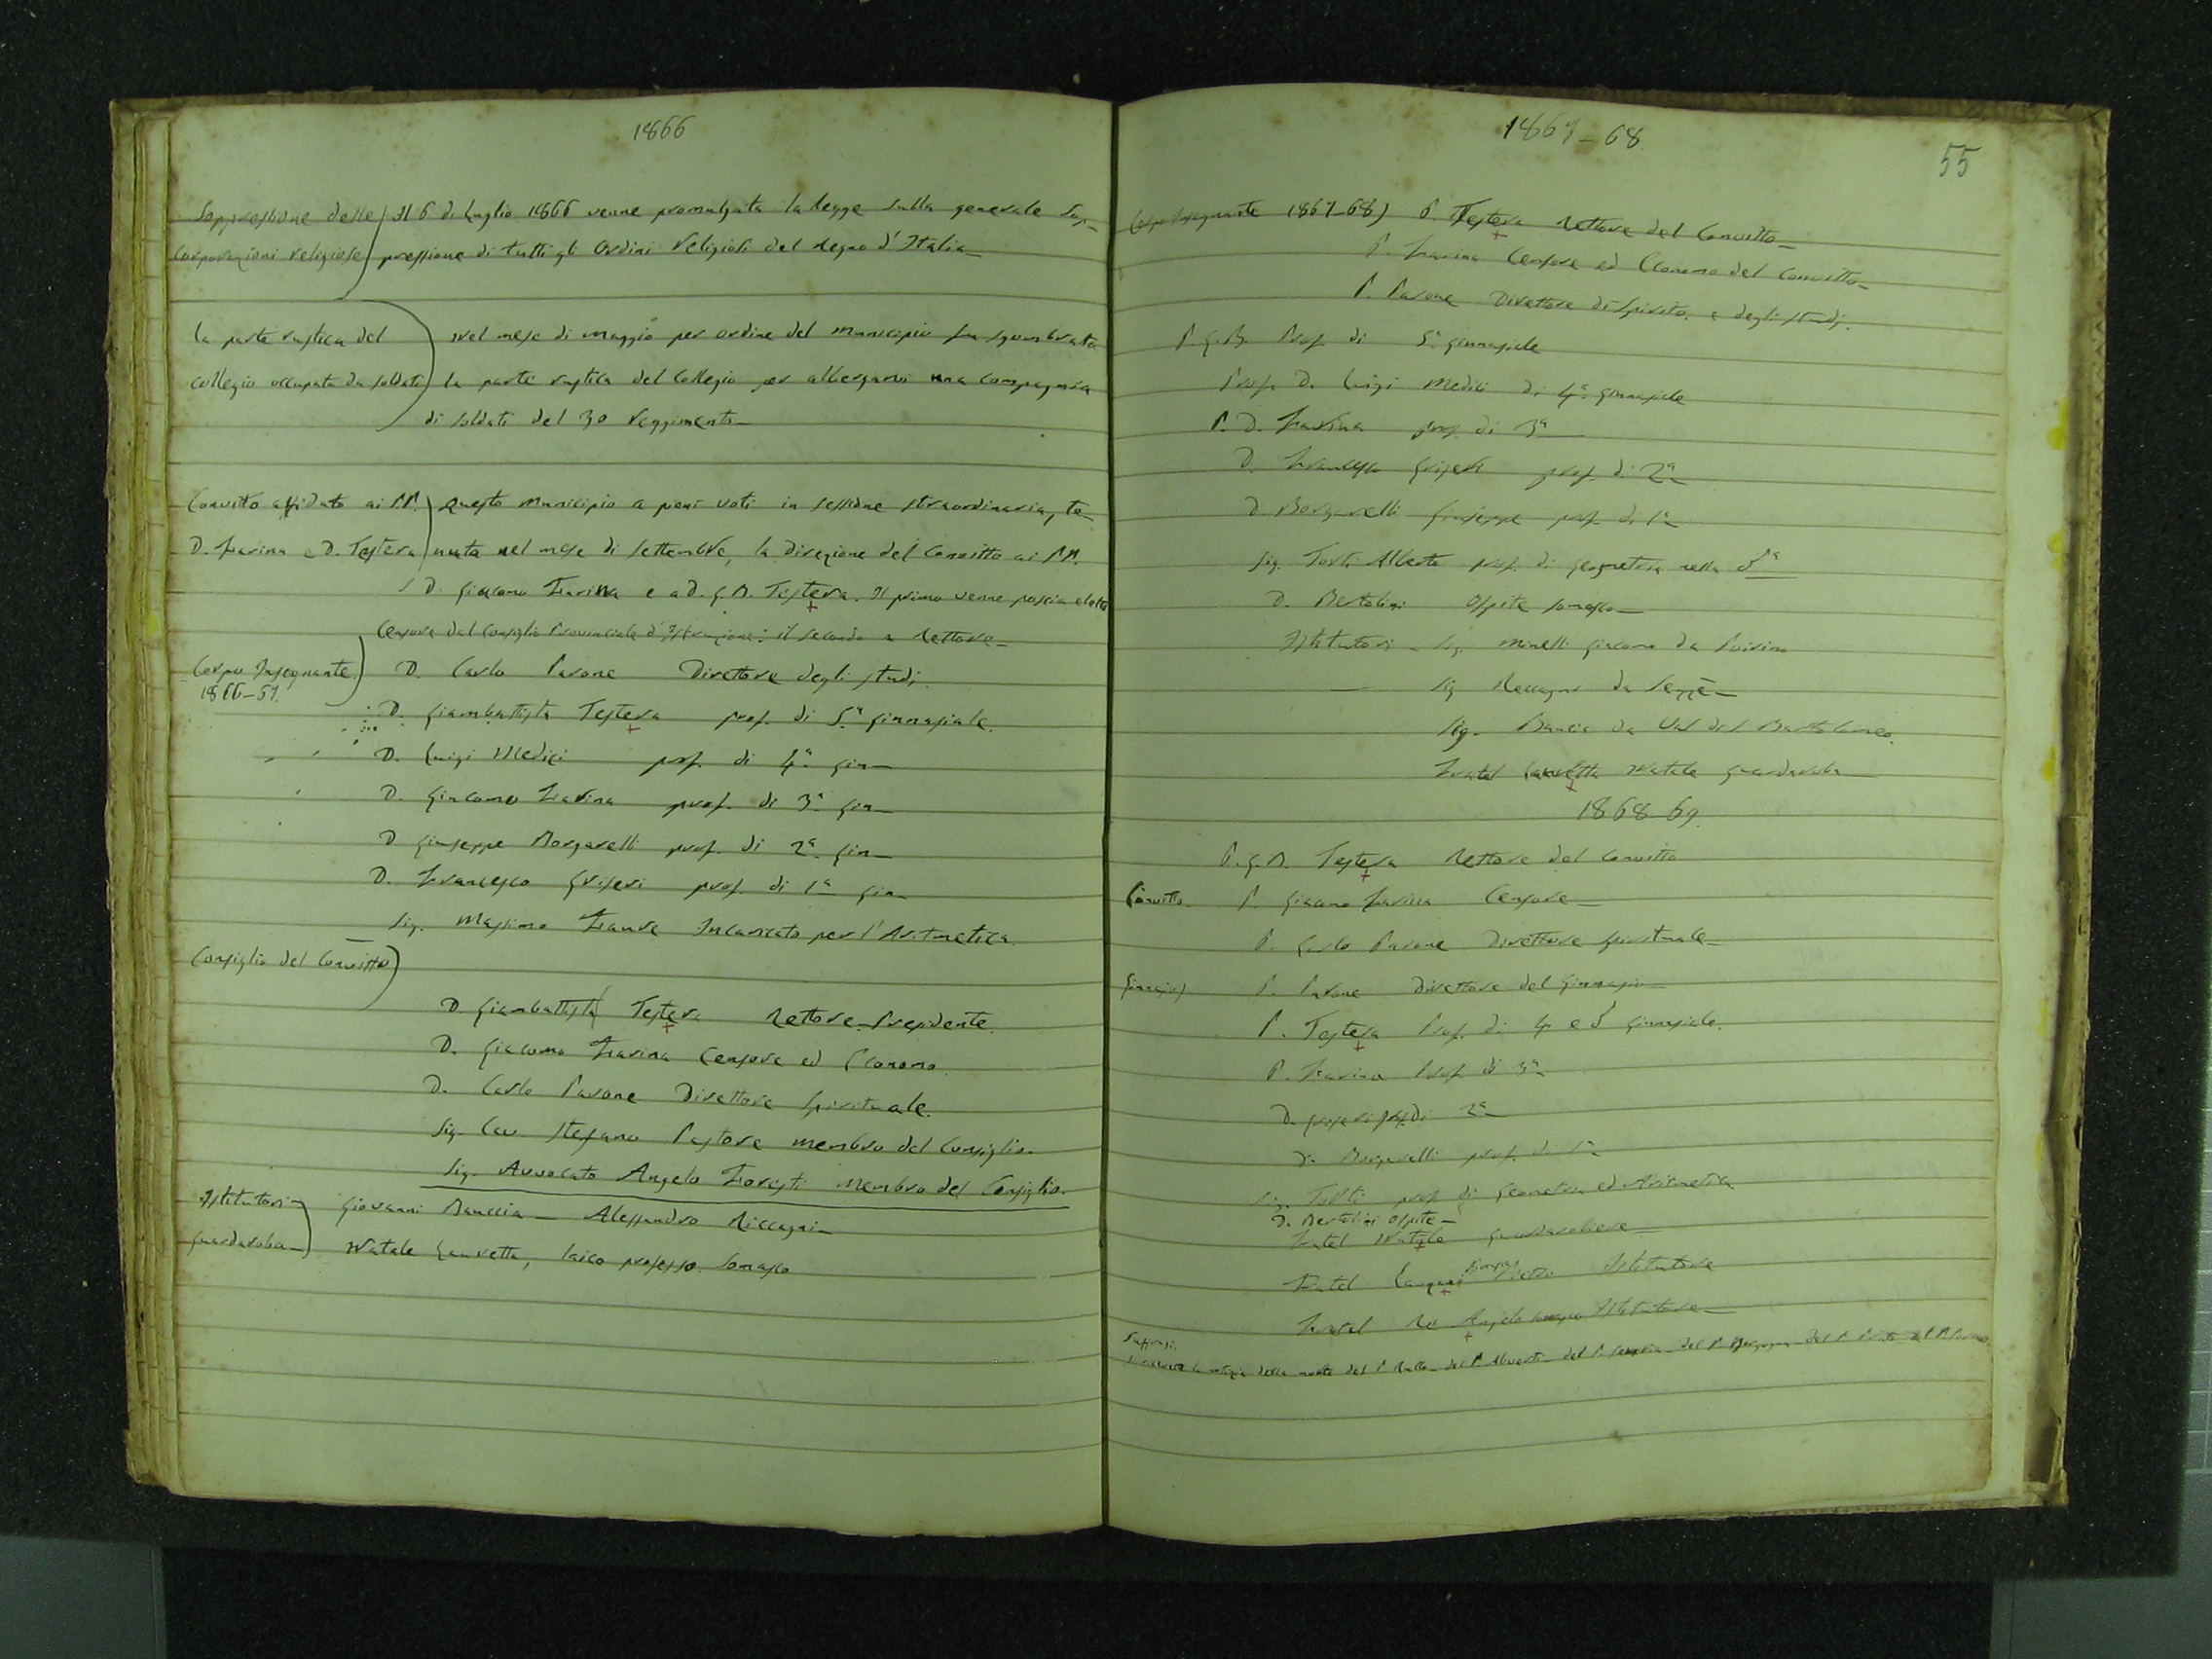 1866
Soppressione delle Il 6 di Luglio 1866 venne promulgata la legge sulla generale Sop-
Corporazioni religiose pressione di tutti gli Ordini Religiosi del Regno d'Italia_
La parte rustica del Nel mese di Maggio per ordine del Municipio fu sgombrata
collegio occupata da soldati la parte rustica del Collegio per albergarvi una compagnia
di soldati del 30 Reggimento_
Convitto affidato ai PP. Questo Municipio a pieni voti in sessione straordinaria, te-
D. Lavina e D. Testera nuta nel mese di settembre, la direzione del Convitto ai PP.
D. Giacomo Lavina e a D. G.B. Testera. Il primo venne poscia eletto
Censore dal Consiglio Provinciale d'Istruzione: il secondo a Rettore_
Corpo Insegnante D. Carlo Pavone Direttore degli studi
1866-67.
D. Giambattista Testera prof. di 5.a ginnasiale.
D. Luigi Medici prof. di 4.a gin_
D. Giacomo Lavina prof. di 3.a gin_
D Giuseppe Borgarelli prof. di 2.a gin_
D. Francesco Griseri prof. di 1a gin_
Sig. Massimo Incaricato per l'Aritmetica.
Consiglio del Convitto)
D. Giambattista Testera Rettore Presidente.
D. Giacomo Lavina Censore ed Economo
D. Carlo Pavone Direttore Spirituale.
Sig. Cav. Stefano Pastore membro del Consiglio.
Sig. Avvocato Angelo Foresti Membro del Consiglio.
Istitutori Giovanni Bauccia_ Alessandro Riccagni_
Guardaroba_ Natale Gauvetta, laico professo Somasco
1867-68.
55
Corpo Insegnante 1867-68) P. Testera Rettore del Convitto_
P. Lavina Censore ed Economo del Convitto_
P. Pavone Direttore di Spirito e degli studj.
P. G.B. Prof. di 5.a ginnasiale
Prof. D. Luigi Medici di 4.a ginnasiale
P. D. Lavina prof. di 3a
D. Francesco Griseri prof. di 2a
D. Borgarelli Giuseppe prof. di 1a
Sig. Torti Alberto prof. di geometria nella 5a
D. Bertolini Ospite somasco_
Istitutori_ Sig. Minelli Giacomo da Poirino
Sig da Sezzè_
Sig. da Val di S. Bartolomeo.
Fratel Natale guardaroba
1868-69.
P. G. B. Testera Rettore del Convitto
Convitto_ P. Giacomo Lavina Censore_
P. Carlo Pavone Direttore Spirituale_
Ginnasio) P. Pavone Direttore del Ginnasio_
P. Testera Prof. di 4 e 5 ginnasiale.
P. Lavina Prof. di 3a
D. Griseri prof. di 2a
D. Borgarelli prof. di 1a
Sig. Torti prof di Geometria ed Aritmetica
D. Bertolini Ospite_
Fratel Natale guardarobiere_
Fratel Pietro Istitutore
Fratel Re Angelo Istitutore_
Suffragi.
la notizia della morte del P. del P. Alberti_ del P. del P. del P.